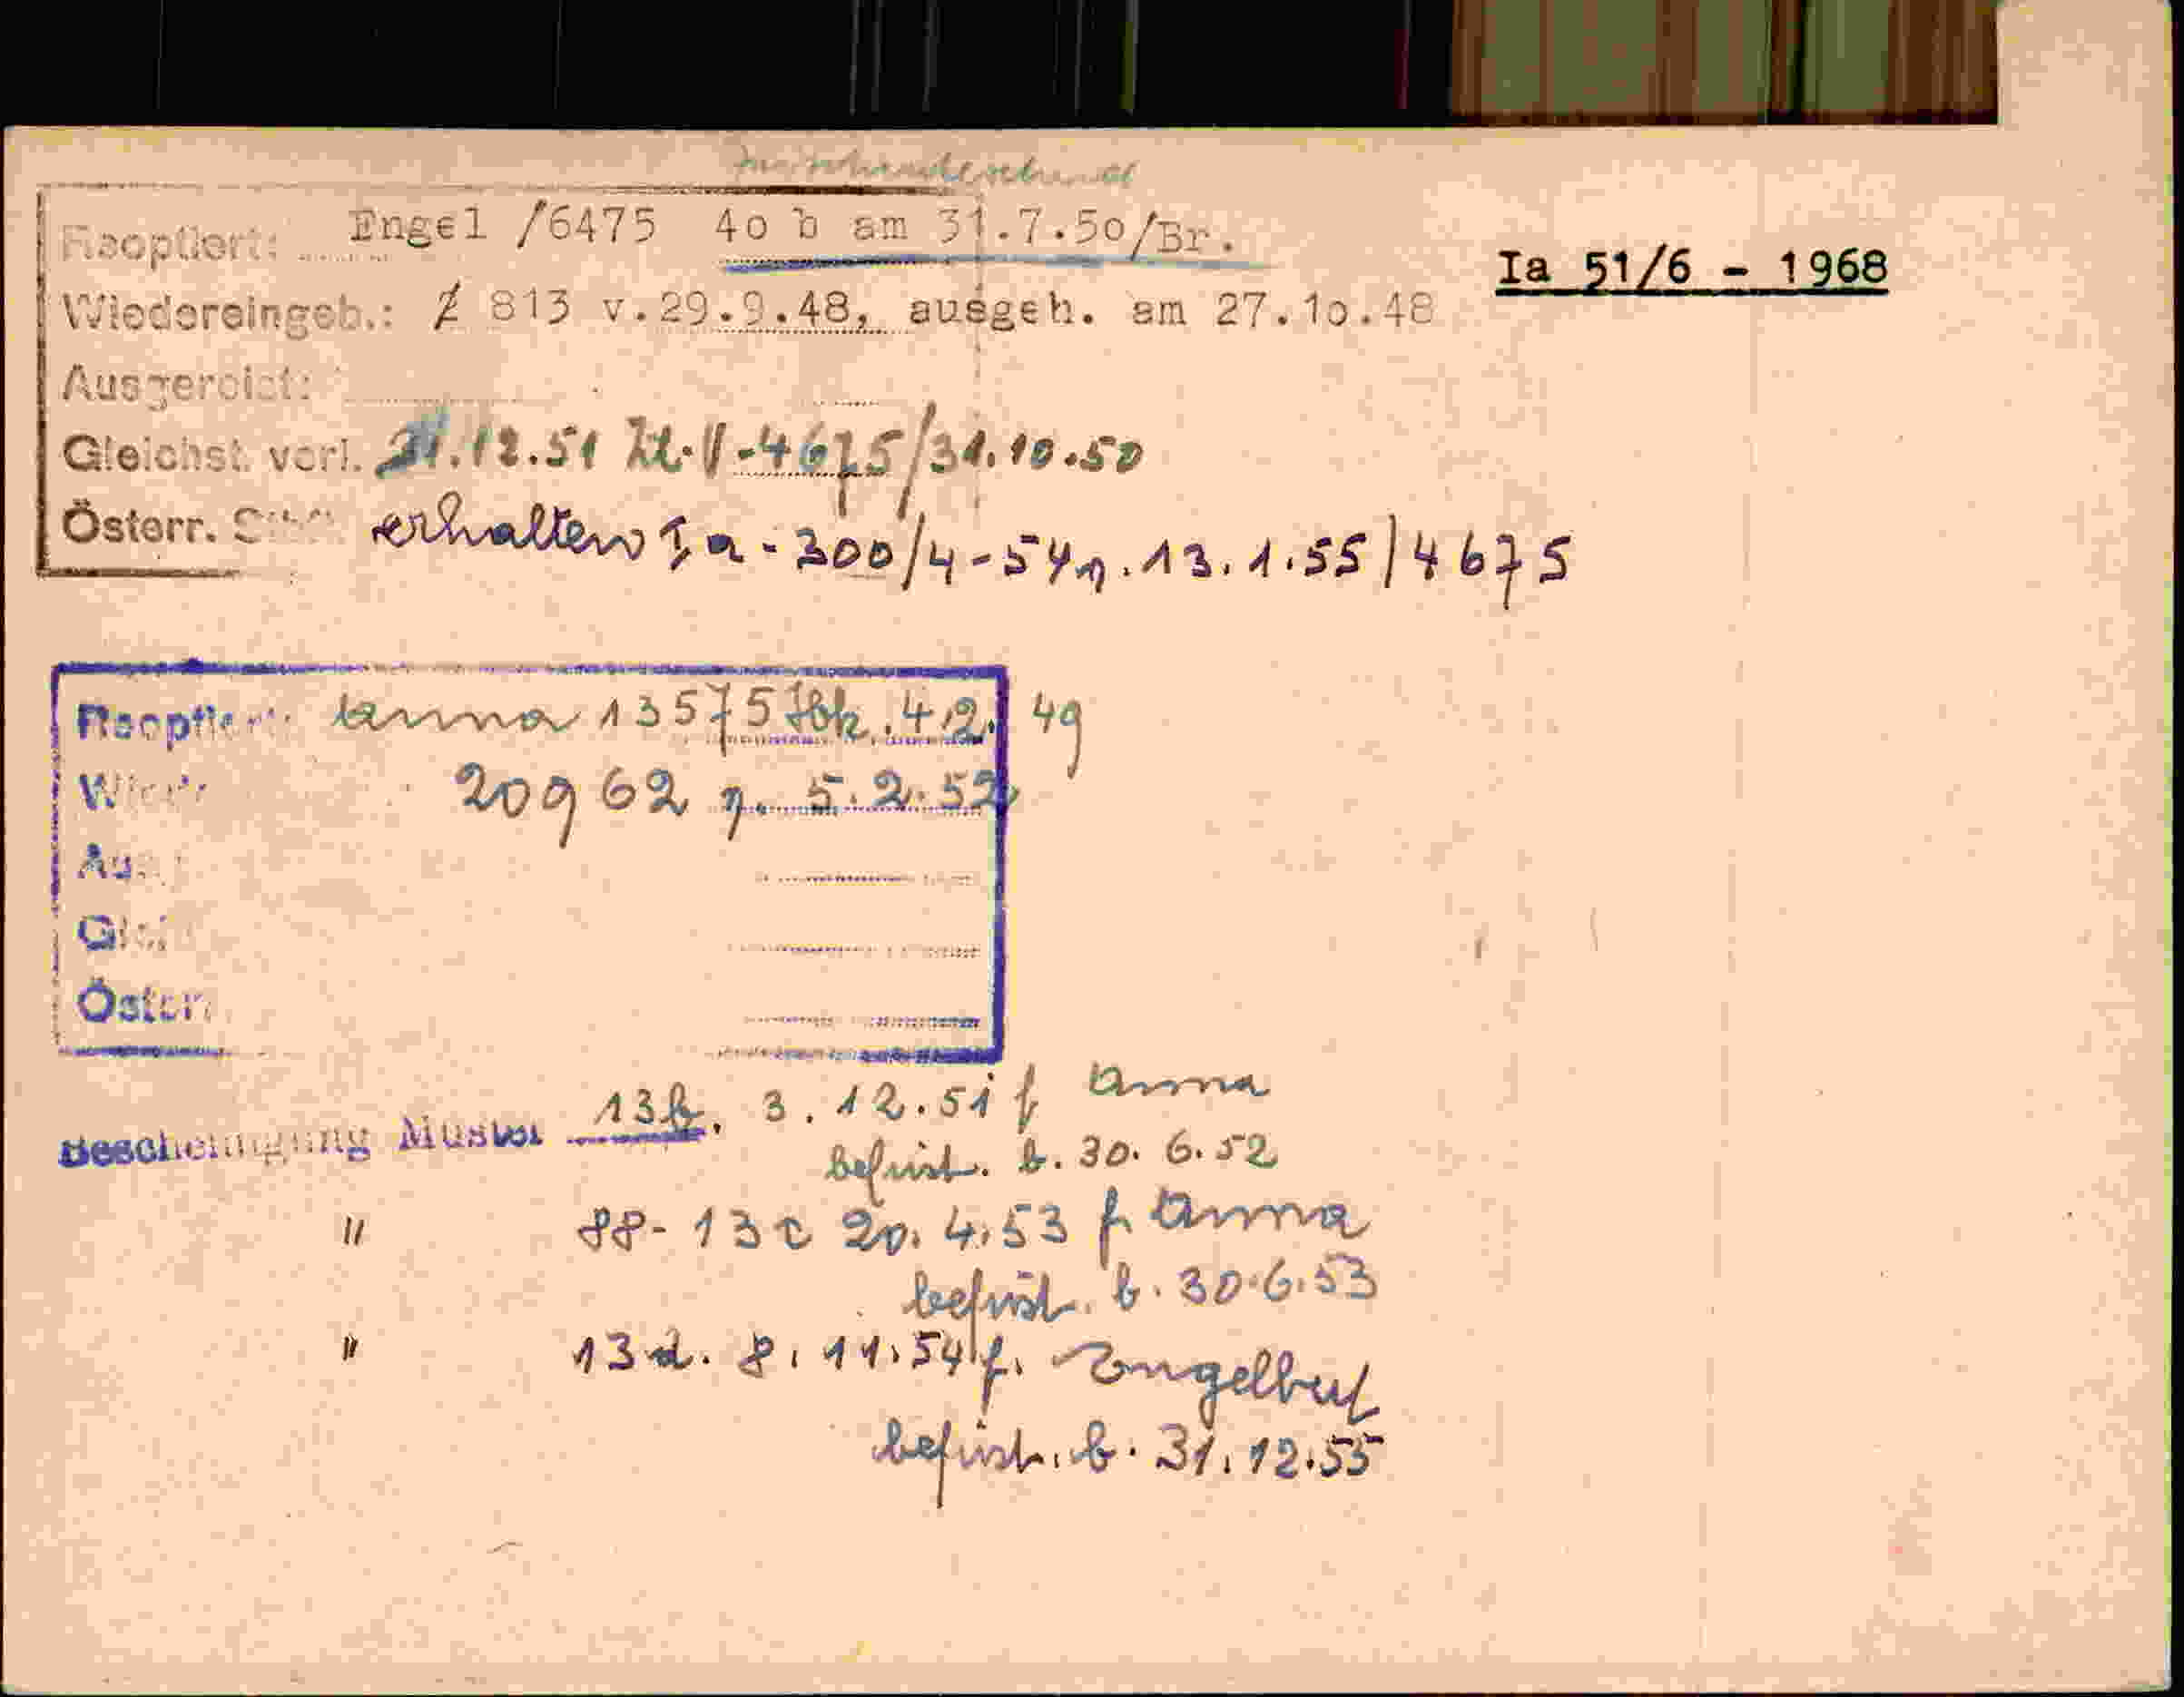 Reoptiert: Engel /6475 4o b am 31.7.5o/Br.
Ia 51/6 - 1968
Wiedereingeb.: Z 813 v.29.9.48, ausgeh. am 27.1o.48
Ausgereist:
Gleichst. verl. 31.12.51 Zl.V-4675/31.10.50
Österr. erhalten Ia-300/4-54 v. 13.1.55/4675
Reoptiert: Anna 13575 4.2.49
20962 v. 5.2.52
Österr.
Bescheinigung Muster 13b. 3.12.51 f Anna
befrist. b. 30.6.52
" 88-13c 20.4.53 f. Anna
befrist. b. 30.6.53
" 13d. 8.11.54 f. Engelbert
befrist. b. 31.12.55